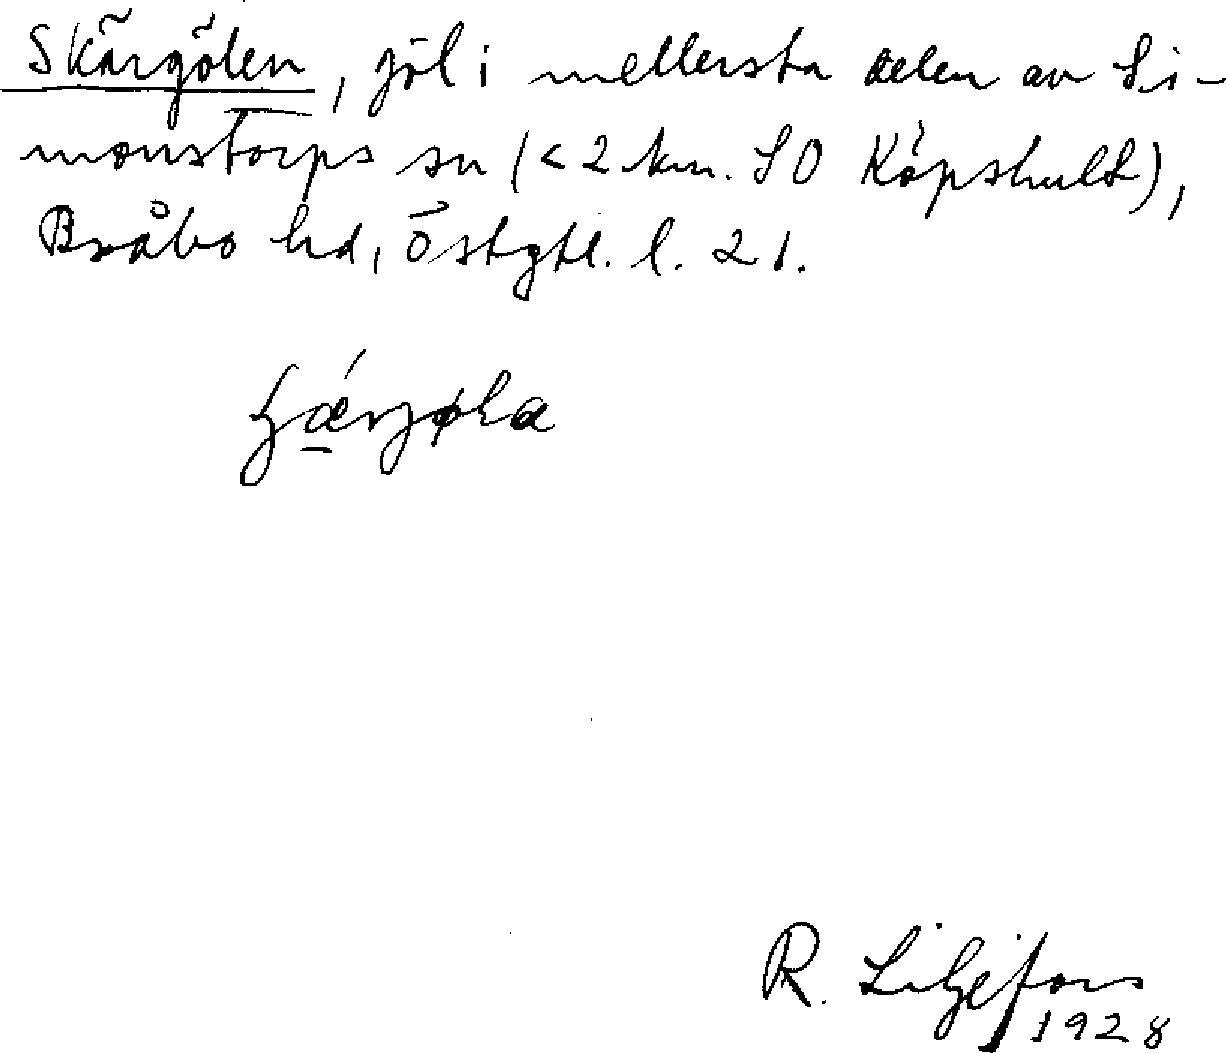 Skärgölen, göl i mellersta delen av Si-
monstorps sn (< 2 km. SO Köpshult),
Bråbo hd, Östgtl. l. 21.
R. Liljefors
1928